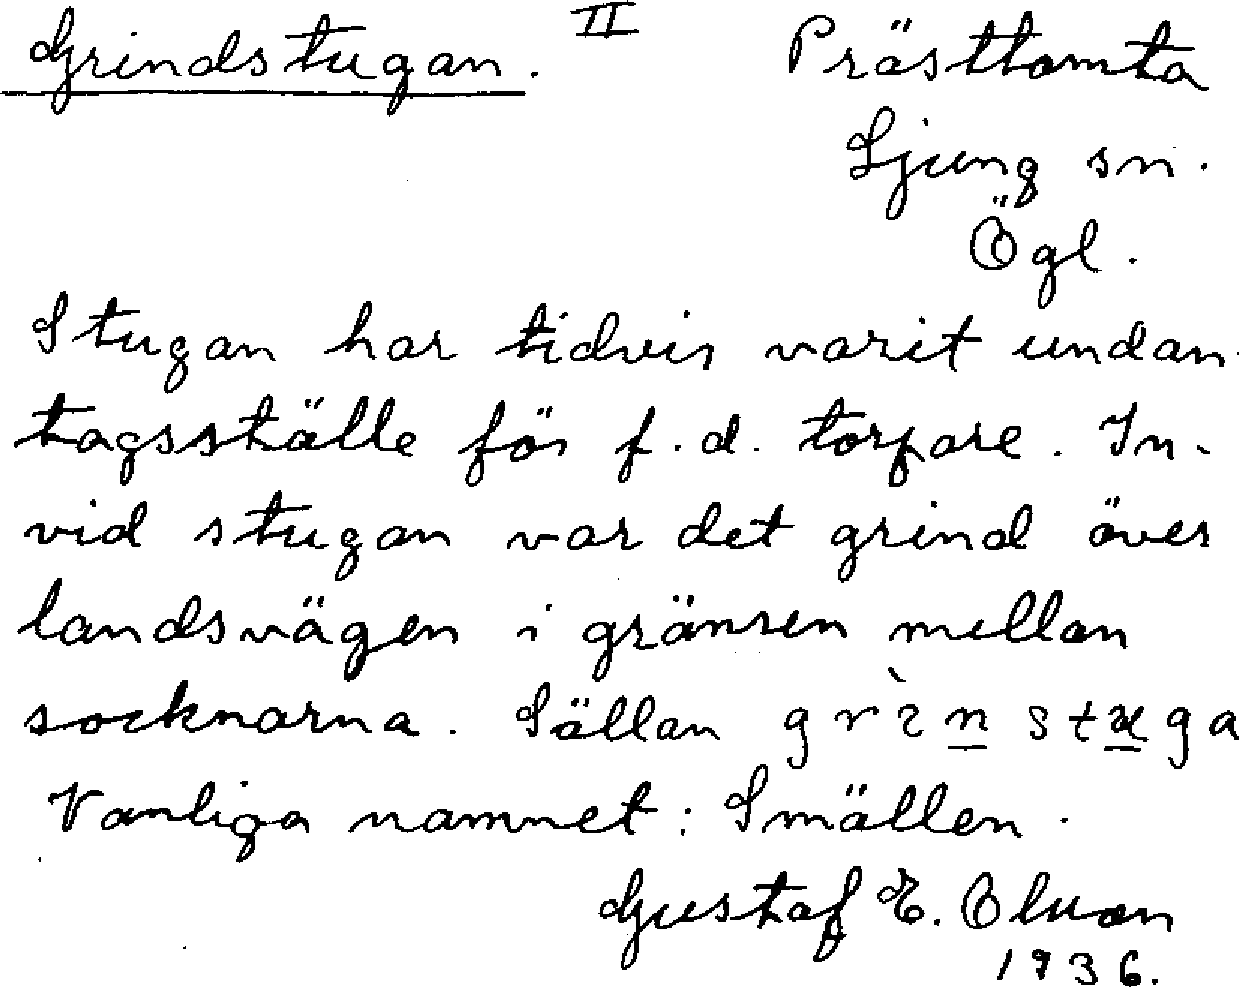 Grindstugan. II Prästtomta
Ljung sn.
Ögl.
Stugan har tidvis varit undan-
tagsställe för f.d. torpare. In-
vid stugan var det grind över
landsvägen i gränsen mellan
socknarna. Sällan grìnstuga
Vanliga namnet: Smällen.
Gustaf E. Olsson
1936.